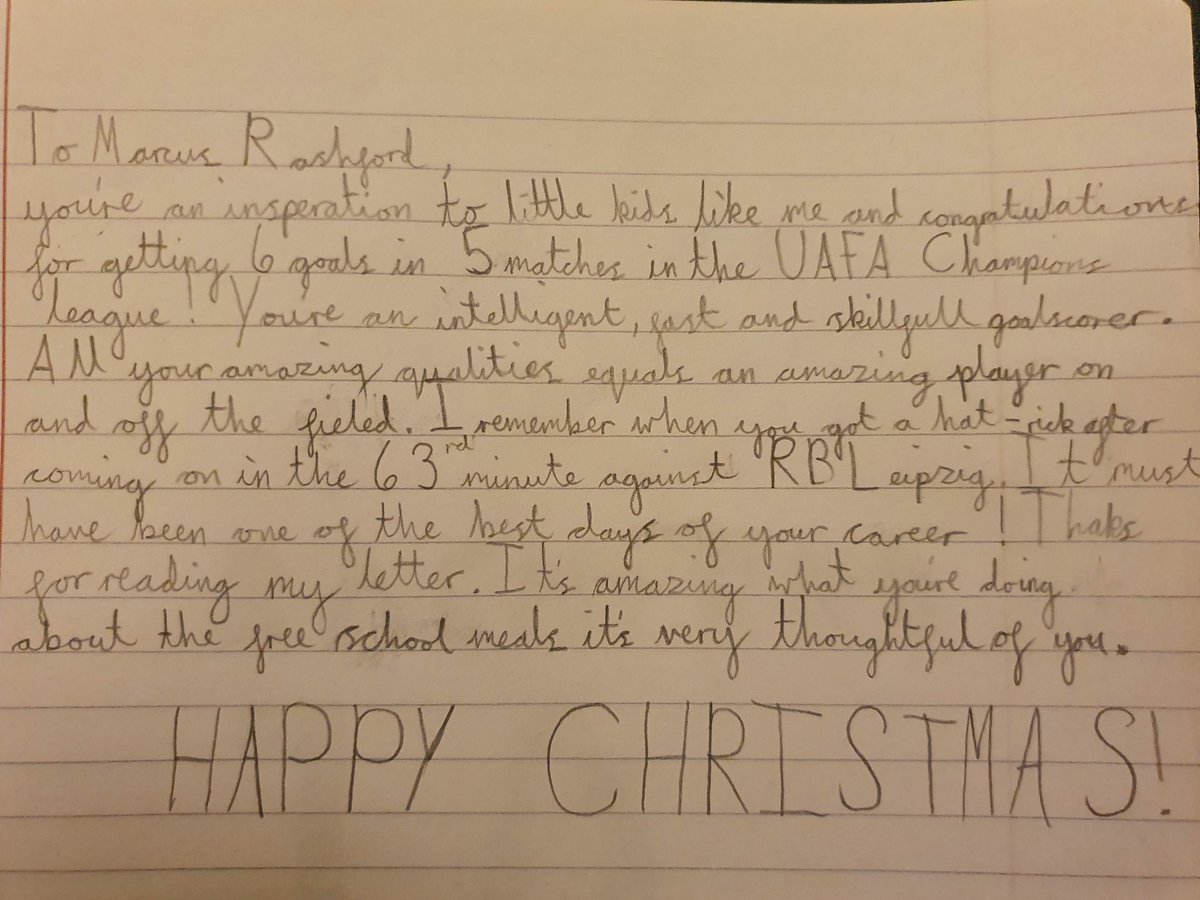 To Marcus Rashford,
you're an insperation to little kids like me and congratulations
for getting 6 goals in 5 matches in the UAFA Champions
league! You're an intelligent, fast and skillfull goalscorer.
All your amazing qualities equals an amazing player on
and off the fieled. I remember when you got a hat-rick after
coming on in the 63rd minute against RB Leipzig. It must
have been one of the best days of your career! Thaks
for reading my letter. It's amazing what you're doing
about the free school meals it's very thoughtful of you.
HAPPY CHRISTMAS!